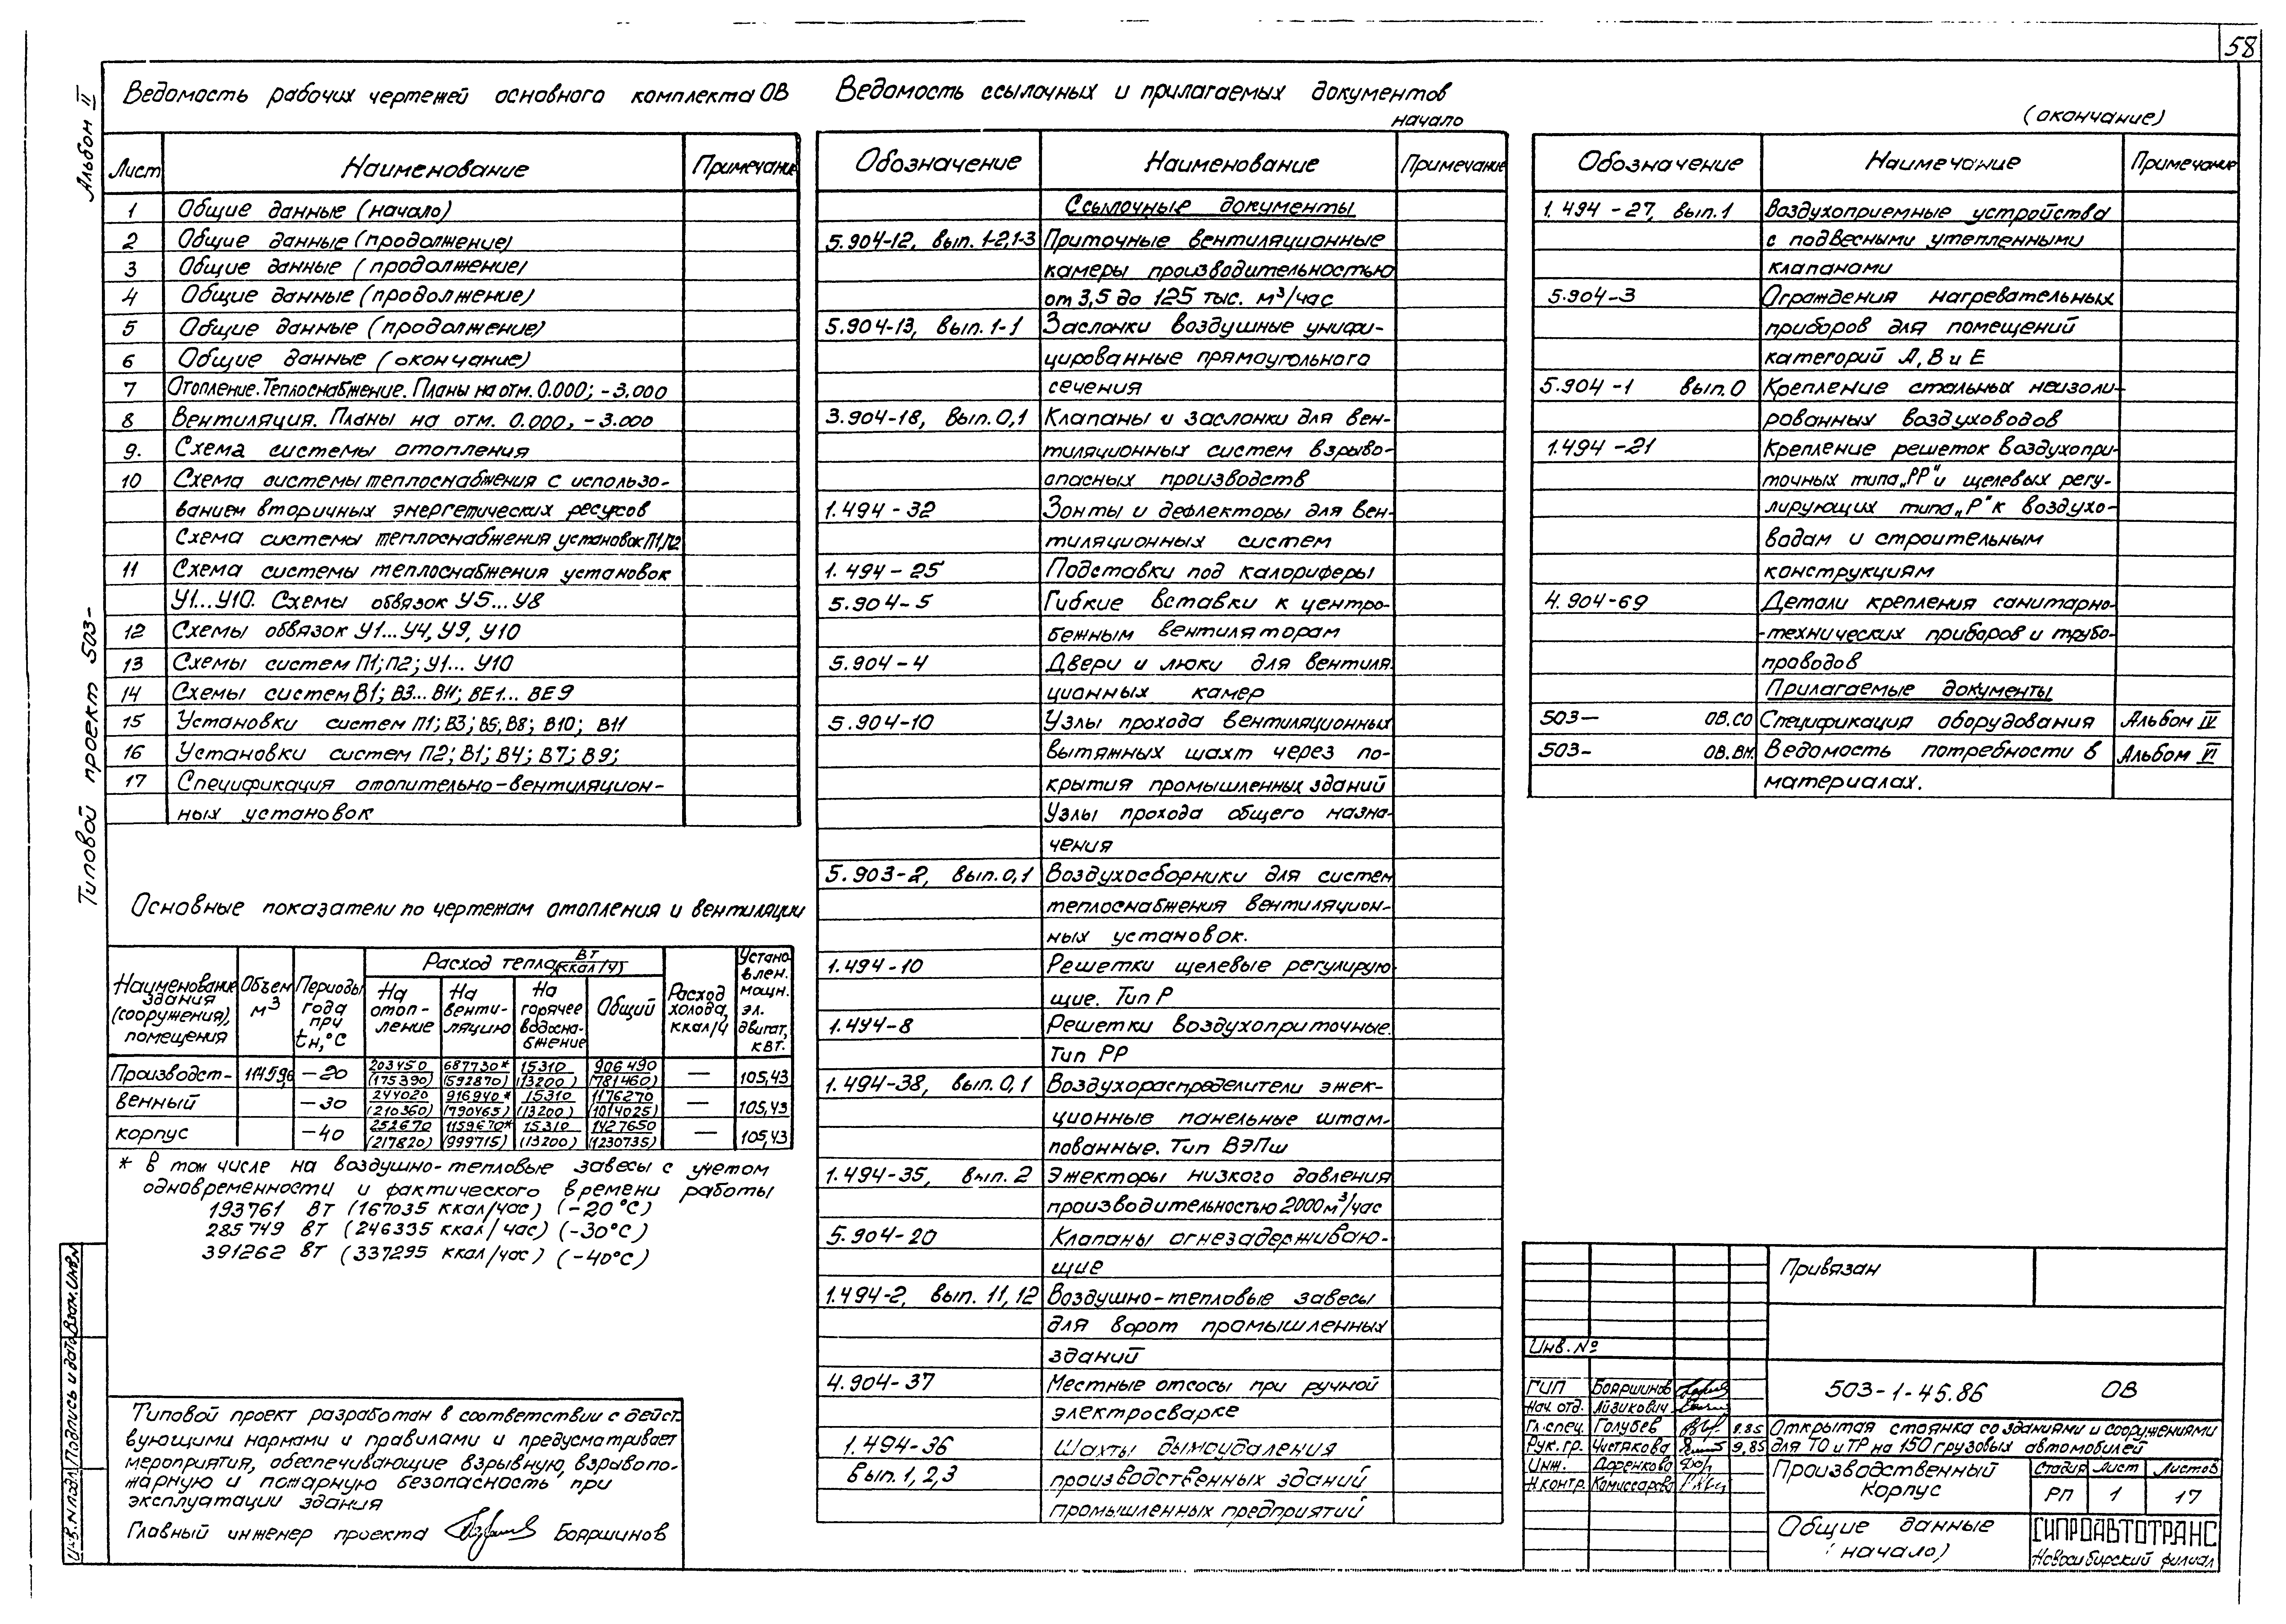 58
Альбом II
Типовой проект 503-
Ведомость рабочих чертежей основного комплекта ОВ
Лист Наименование Примечание
1 Общие данные (начало)
2 Общие данные (продолжение)
3 Общие данные (продолжение)
4 Общие данные (продолжение)
5 Общие данные (продолжение)
6 Общие данные (окончание)
7 Отопление. Теплоснабжение. Планы на отм. 0.000; -3.000
8 Вентиляция. Планы на отм. 0.000, -3.000
9. Схема системы отопления
10 Схема системы теплоснабжения с использо-
ванием вторичных энергетических ресурсов
Схема системы теплоснабжения установок П1,П2
11 Схема системы теплоснабжения установок
У1...У10. Схемы обвязок У5...У8
12 Схемы обвязок У1...У4, У9, У10
13 Схемы систем П1; П2; У1... У10
14 Схемы систем В1; В3...В11; ВЕ1... ВЕ9
15 Установки систем П1; В3; В5; В8; В10; В11
16 Установки систем П2; В1; В4; В7; В9;
17 Спецификация отопительно-вентиляцион-
ных установок
Основные показатели по чертежам отопления и вентиляции
Наименование здания (сооружения), помещения
Объем м³
Периоды года при tн,°С
Расход тепла Вт (ккал/ч)
На отоп-ление
На венти-ляцию
На горячее водосна-бжение
Общий
Расход холода, ккал/ч
Установлен. мощн. эл. двигат, квт.
Производст- 11459,6 -20 203450 (175390) 687730* (592870) 15310 (13200) 906490 (781460) — 105,43
венный -30 244020 (210360) 916940* (790465) 15310 (13200) 1176270 (1014025) — 105,43
корпус -40 252670 (217820) 1159670* (999715) 15310 (13200) 1427650 (1230735) — 105,43
* в том числе на воздушно-тепловые завесы с учетом
одновременности и фактического времени работы
193761 Вт (167035 ккал/час) (-20°С)
285749 Вт (246335 ккал/час) (-30°С)
391262 Вт (337295 ккал/час) (-40°С)
Типовой проект разработан в соответствии с дейст-
вующими нормами и правилами и предусматривает
мероприятия, обеспечивающие взрывную, взрывопо-
жарную и пожарную безопасность при
эксплуатации здания
Главный инженер проекта Бояршинов
Инв.N подл. Подпись и дата Взам.инв.N
Ведомость ссылочных и прилагаемых документов
начало
Обозначение Наименование Примечание
Ссылочные документы
5.904-12, вып. 1-2,1-3 Приточные вентиляционные
камеры производительностью
от 3,5 до 125 тыс. м³/час
5.904-13, вып. 1-1 Заслонки воздушные унифи-
цированные прямоугольного
сечения
3.904-18, вып. 0,1 Клапаны и заслонки для вен-
тиляционных систем взрыво-
опасных производств
1.494-32 Зонты и дефлекторы для вен-
тиляционных систем
1.494-25 Подставки под калориферы
5.904-5 Гибкие вставки к центро-
бежным вентиляторам
5.904-4 Двери и люки для вентиля-
ционных камер
5.904-10 Узлы прохода вентиляционных
вытяжных шахт через по-
крытия промышленных зданий
Узлы прохода общего назна-
чения
5.903-2, вып. 0,1 Воздухосборники для систем
теплоснабжения вентиляцион-
ных установок.
1.494-10 Решетки щелевые регулирую-
щие. Тип Р
1.494-8 Решетки воздухоприточные.
Тип РР
1.494-38, вып. 0,1 Воздухораспределители эжек-
ционные панельные штам-
пованные. Тип ВЭПш
1.494-35, вып. 2 Эжекторы низкого давления
производительностью 2000м³/час
5.904-20 Клапаны огнезадерживаю-
щие
1.494-2, вып. 11,12 Воздушно-тепловые завесы
для ворот промышленных
зданий
4.904-37 Местные отсосы при ручной
электросварке
1.494-36 Шахты дымоудаления
вып. 1, 2, 3 производственных зданий
промышленных предприятий
(окончание)
Обозначение Наимечание Примечание
1.494-27, вып. 1 Воздухоприемные устройства
с подвесными утепленными
клапанами
5.904-3 Ограждения нагревательных
приборов для помещений
категорий А, В и Е
5.904-1 вып. 0 Крепление стальных неизоли-
рованных воздуховодов
1.494-21 Крепление решеток воздухопри-
точных типа „РР“ и щелевых регу-
лирующих типа „Р“ к воздухо-
водам и строительным
конструкциям
4.904-69 Детали крепления санитарно-
-технических приборов и трубо-
проводов
Прилагаемые документы
503- ОВ.СО Спецификация оборудования Альбом IV
503- ОВ.ВМ. Ведомость потребности в Альбом VI
материалах.
Привязан
Инв. №
503-1-45.86 ОВ
ГИП Бояршинов
Нач. отд. Айзикович
Гл. спец. Голубев 9.85
Рук. гр. Чистякова 9,85
Инж. Доренкова
Н.контр. Комиссарова
Открытая стоянка со зданиями и сооружениями
для ТО и ТР на 150 грузовых автомобилей
Производственный корпус
Стадия Лист Листов
РП 1 17
Общие данные (начало)
ГИПРОАВТОТРАНС
Новосибирский филиал